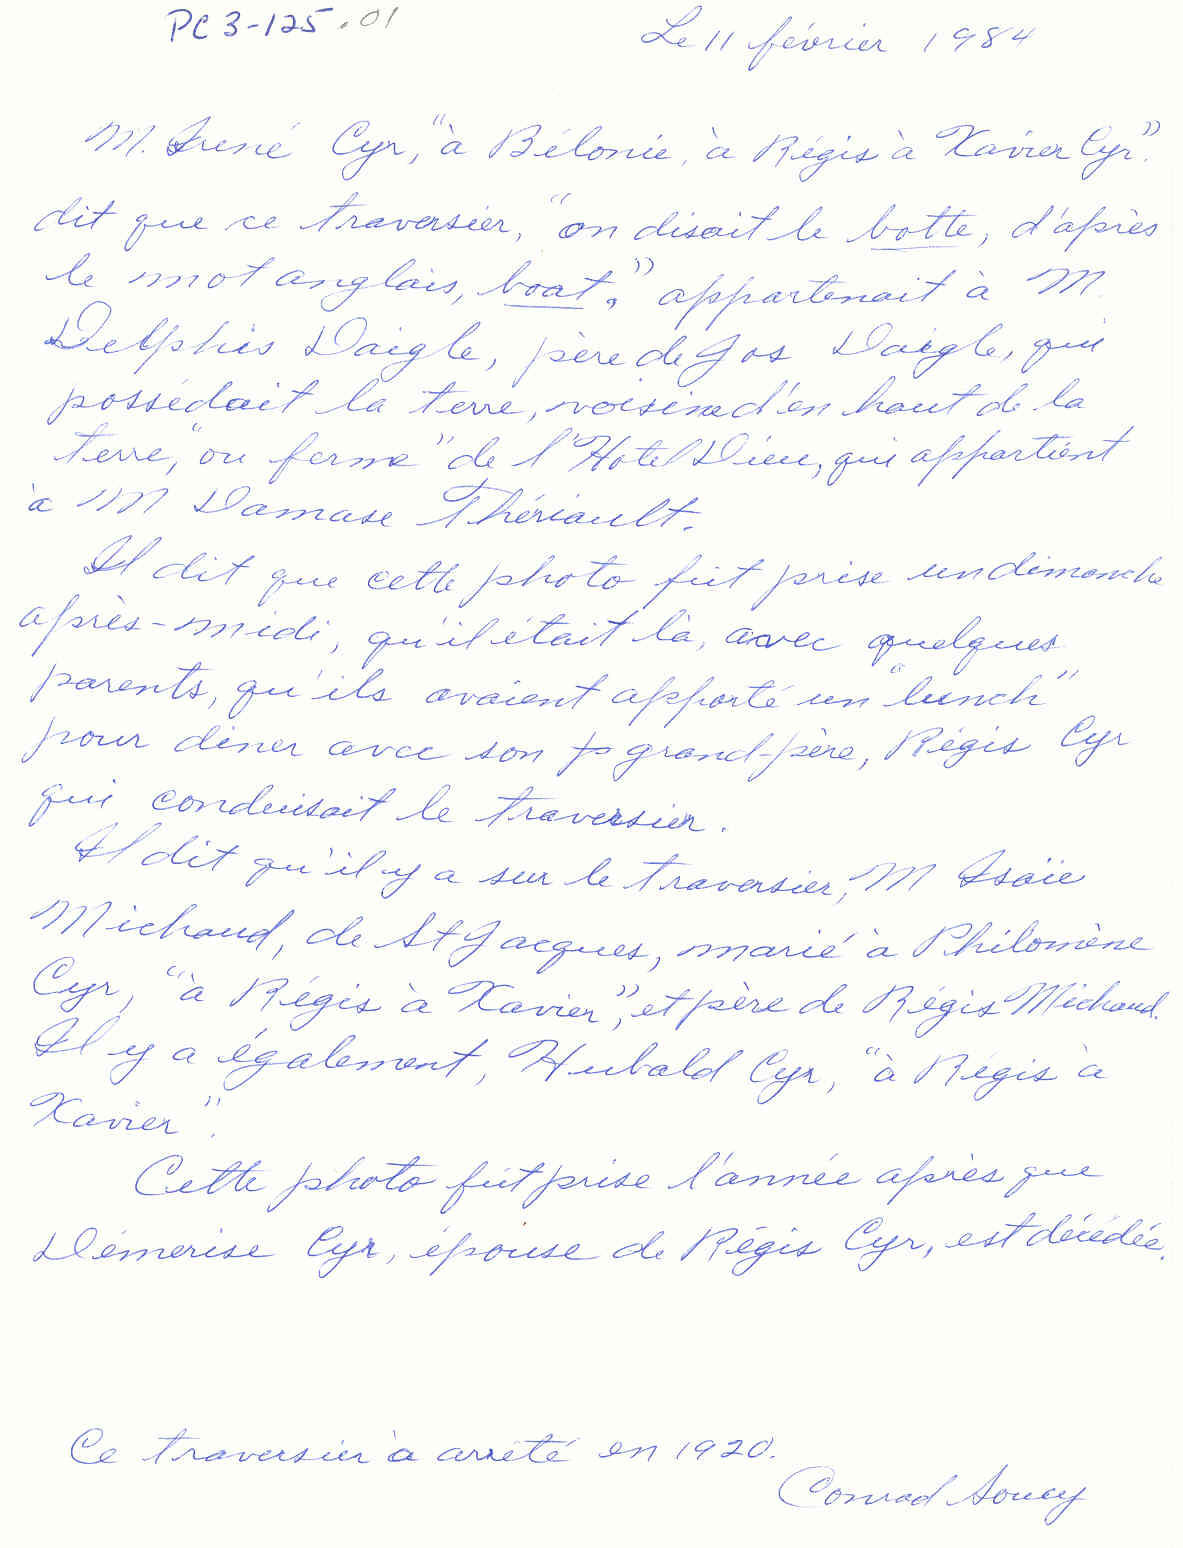 PC 3-125.01
Le 11 février 1984
M. Irené Cyr, "à Bélonie, à Régis à Xavier Cyr".
dit que ce traversier, "on disait le botte, d'après
le mot anglais, boat," appartenait à M.
Delphis Daigle, père de Jos Daigle, qui
possédait la terre, voisine d'en haut de la
terre, "ou ferme" de l'Hotel Dieu, qui appartient
à M Damase Thériault.
Il dit que cette photo fut prise un dimanche
après-midi, qu'il était là, avec quelques
parents, qu'ils avaient apporté un "lunch"
pour diner avec son grand-père, Régis Cyr
qui conduisait le traversier.
Il dit qu'il y a sur le traversier, M Isaïe
Michaud, de St Jacques, marié à Philomène
Cyr, "à Régis à Xavier", et père de Régis Michaud.
Il y a également, Hubald Cyr, "à Régis à
Xavier".
Cette photo fut prise l'année après que
Démerise Cyr, épouse de Régis Cyr, est décédée.
Ce traversier à arrêté en 1920.
Conrad Soucy